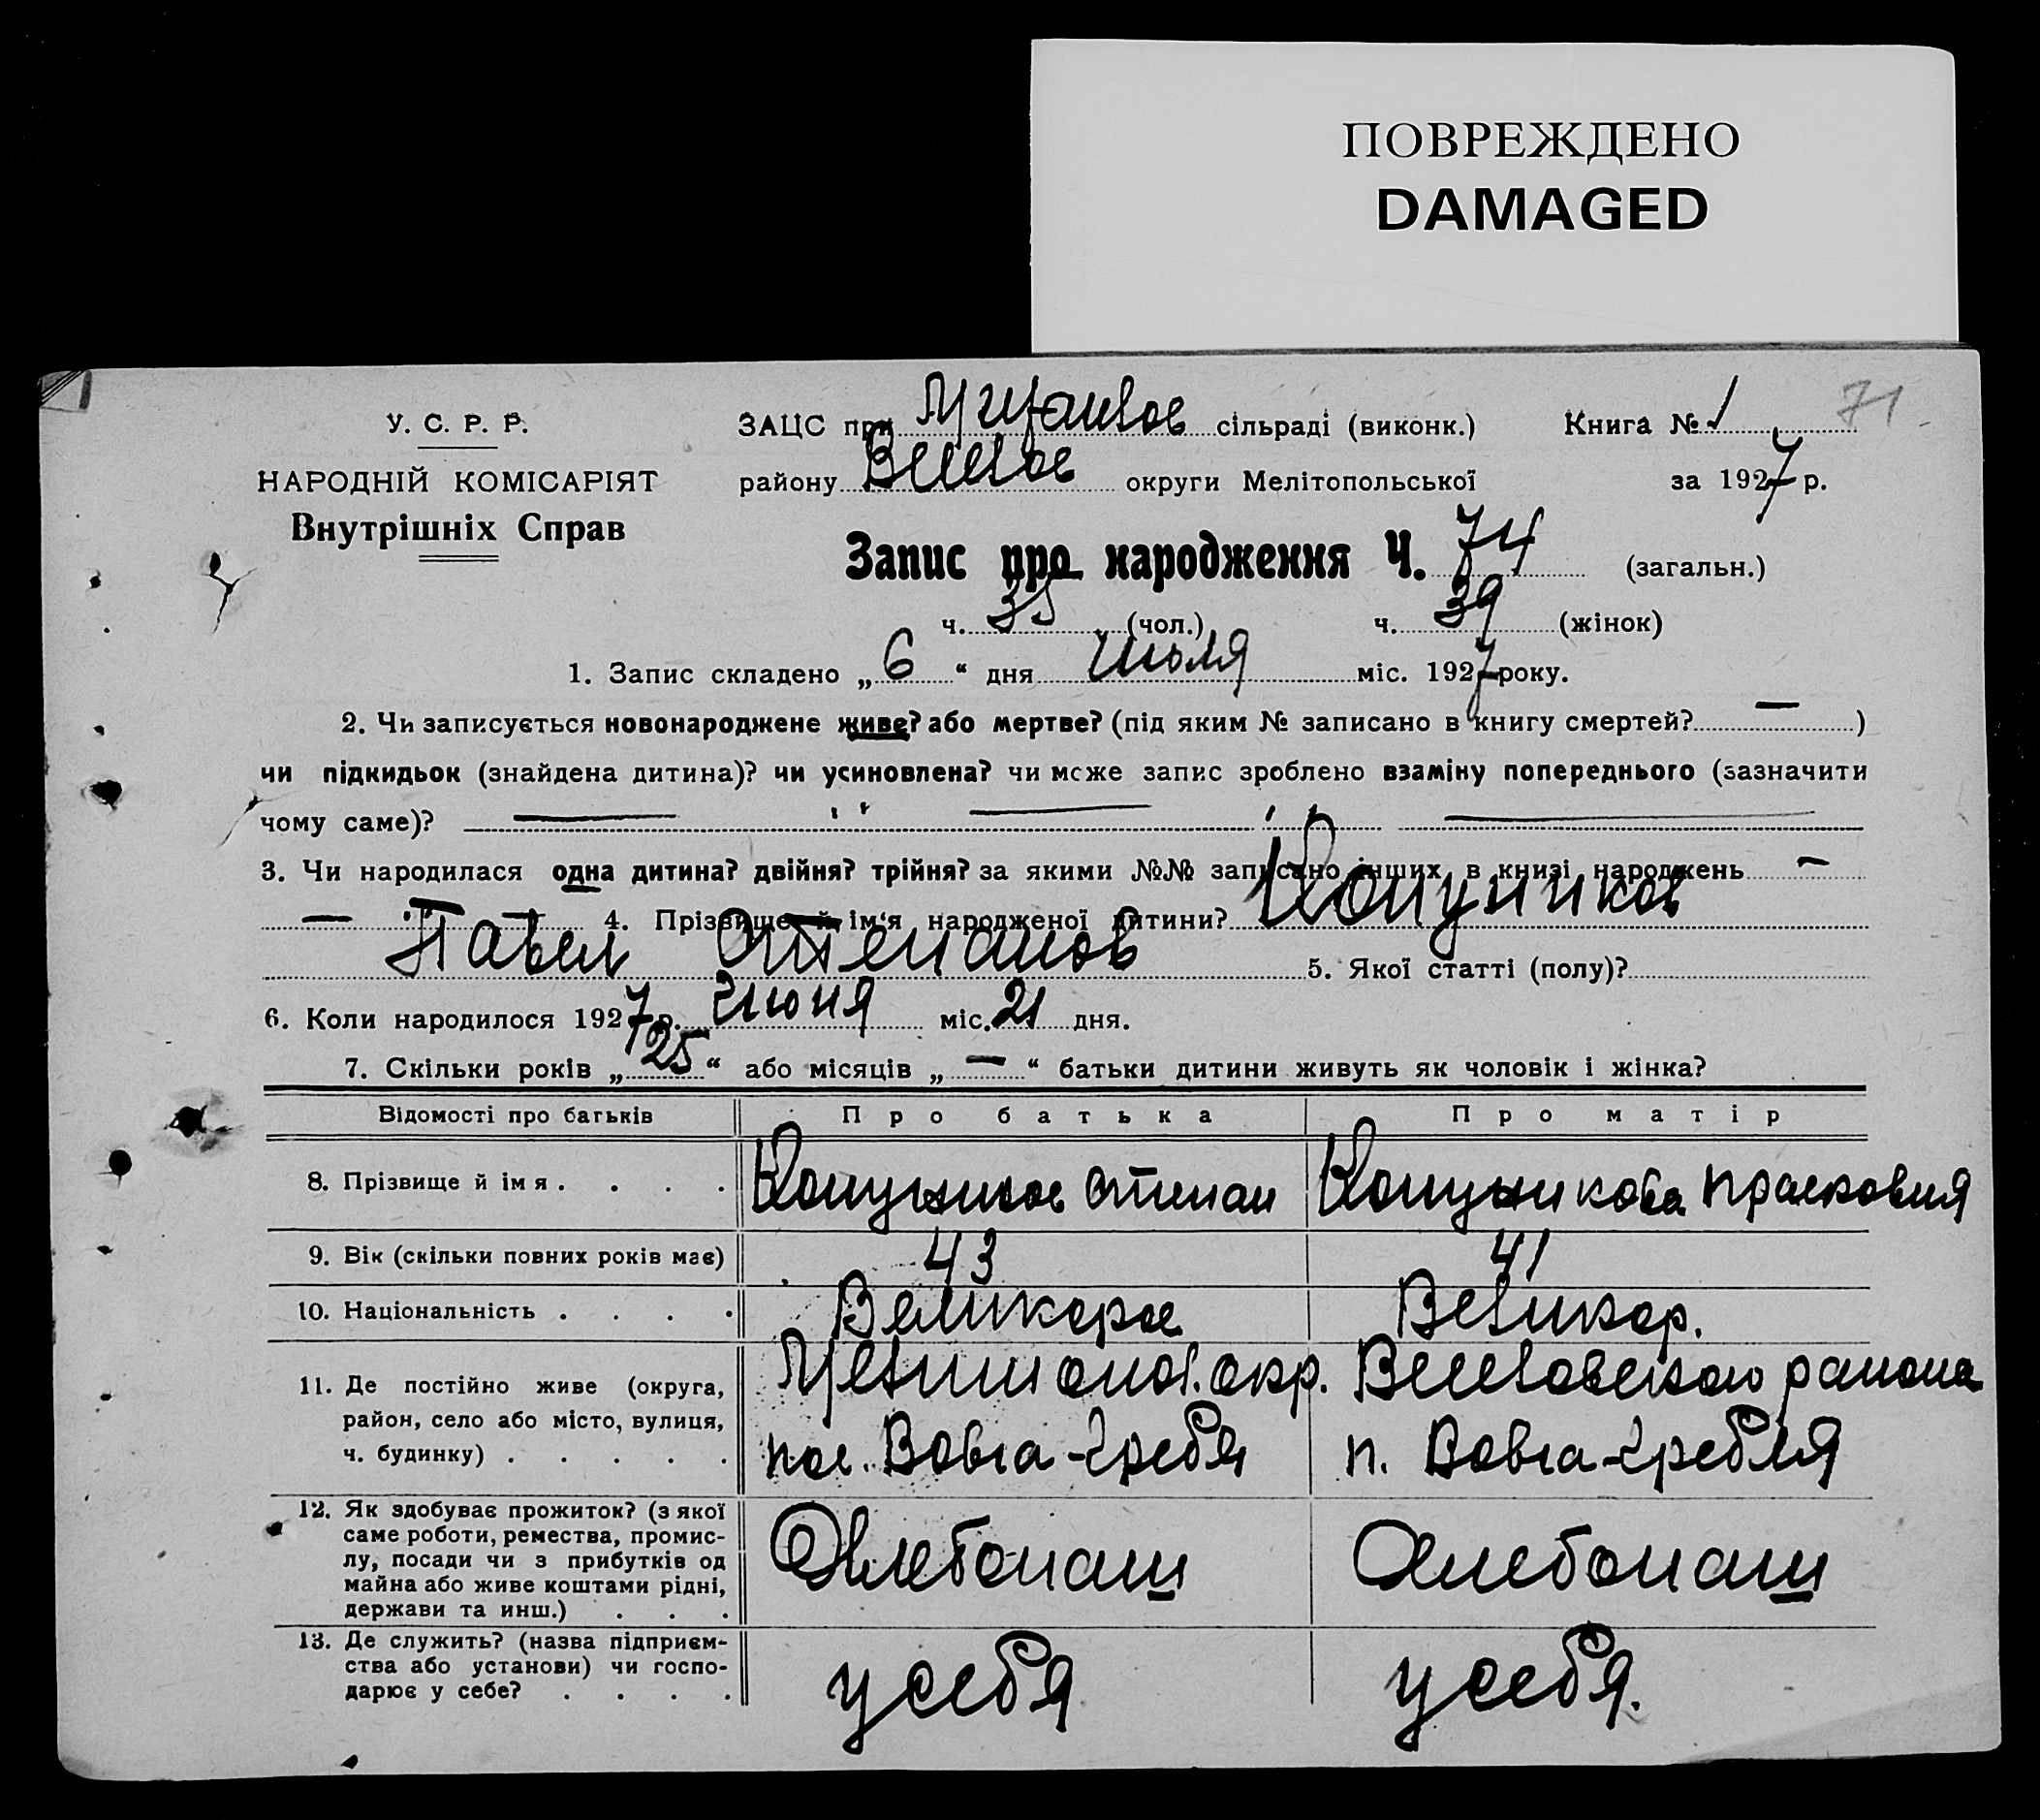 ПОВРЕЖДЕНО
DAMAGED
71
У. С. Р. Р.
НАРОДНІЙ КОМІСАРІЯТ
Внутрішніх Справ
ЗАЦС при сільраді (виконк.) Книга № 1
району округи Мелітопольської за 1927 р.
Запис про народження Ч. 74 (загальн.)
ч. 35 (чол.) ч. 39 (жінок)
1. Запис складено „ 6 “ дня Июля міс. 1927 року.
2. Чи записується новонароджене живе? або мертве? (під яким № записано в книгу смертей? — )
чи підкидьок (знайдена дитина)? чи усиновлена? чи може запис зроблено взаміну попереднього (зазначити
чому саме)? — — —
3. Чи народилася одна дитина? двійня? трійня? за якими №№ записано інших в книзі народжень —
— 4. Прізвище й ім‘я народженої дитини?
Павел Степанов 5. Якої статті (полу)?
6. Коли народилося 1927 р. Июня міс. 21 дня.
7. Скільки років „ 25 “ або місяців „ — “ батьки дитини живуть як чоловік і жінка?
Відомості про батьків Про батька Про матір
8. Прізвище й імя . . . . Степан Прасковия
9. Вік (скільки повних років має) 43 41
10. Національність . . . . Великорос Великор.
11. Де постійно живе (округа, район, село або місто, вулиця, ч. будинку) . . . . .
Мелитопол. окр. Веселовского района
пос. Вовча-Гребля п. Вовча-Гребля
12. Як здобуває прожиток? (з якої
саме роботи, ремества, промис-
лу, посади чи з прибутків од
майна або живе коштами рідні,
держави та инш.) . . . Хлебопаш Хлебопаш
13. Де служить? (назва підприєм-
ства або установи) чи госпо-
дарює у себе? . . . . у себя у себя.